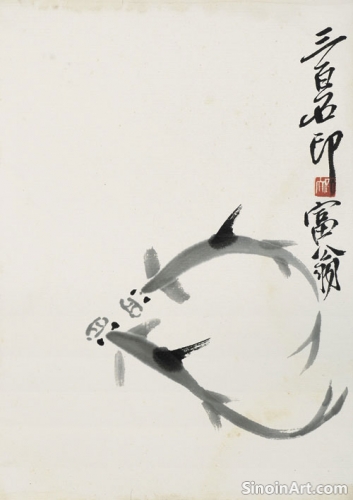 三百石印富翁
SinoinArt.com